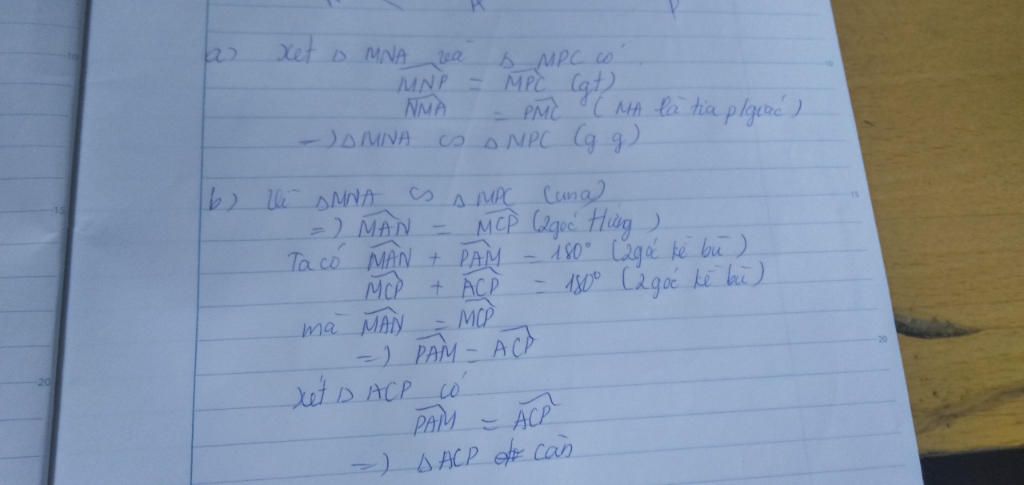 a) Xét Δ MNA và Δ MPC có
MNP = MPC (gt)
NMA = PMC (MA là tia p/giác)
=) Δ MNA ∽ Δ NPC (g g)
b) Vì Δ MNA ∽ Δ MPC (cma)
=) MAN = MCP (2góc t/ứng)
Ta có MAN + PAM = 180° (2góc kề bù)
MCP + ACP = 180° (2góc kề bù)
mà MAN = MCP
=) PAM = ACP
Xét Δ ACP có
PAM = ACP
=) Δ ACP cân
15
20
15
20